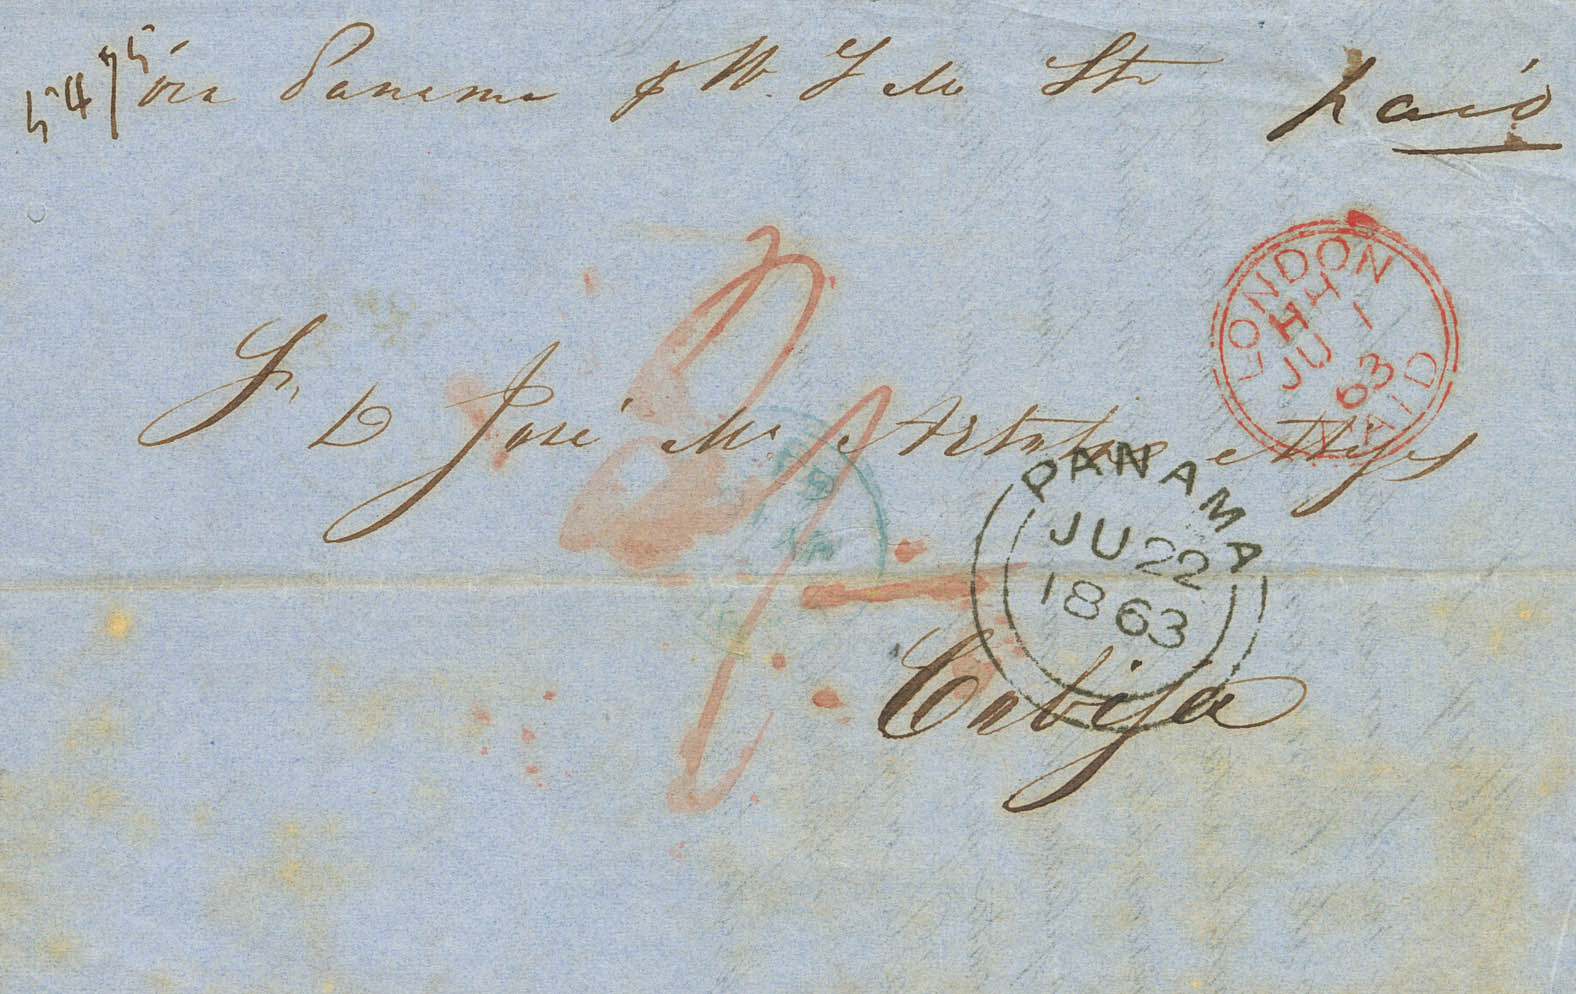 5475
via Panama p W. I. M. Str paid
LONDON
HH
JU 1
63
PAID
Sr. D José Ma. Artola
PANAMA
JU 22
1863
Cobija